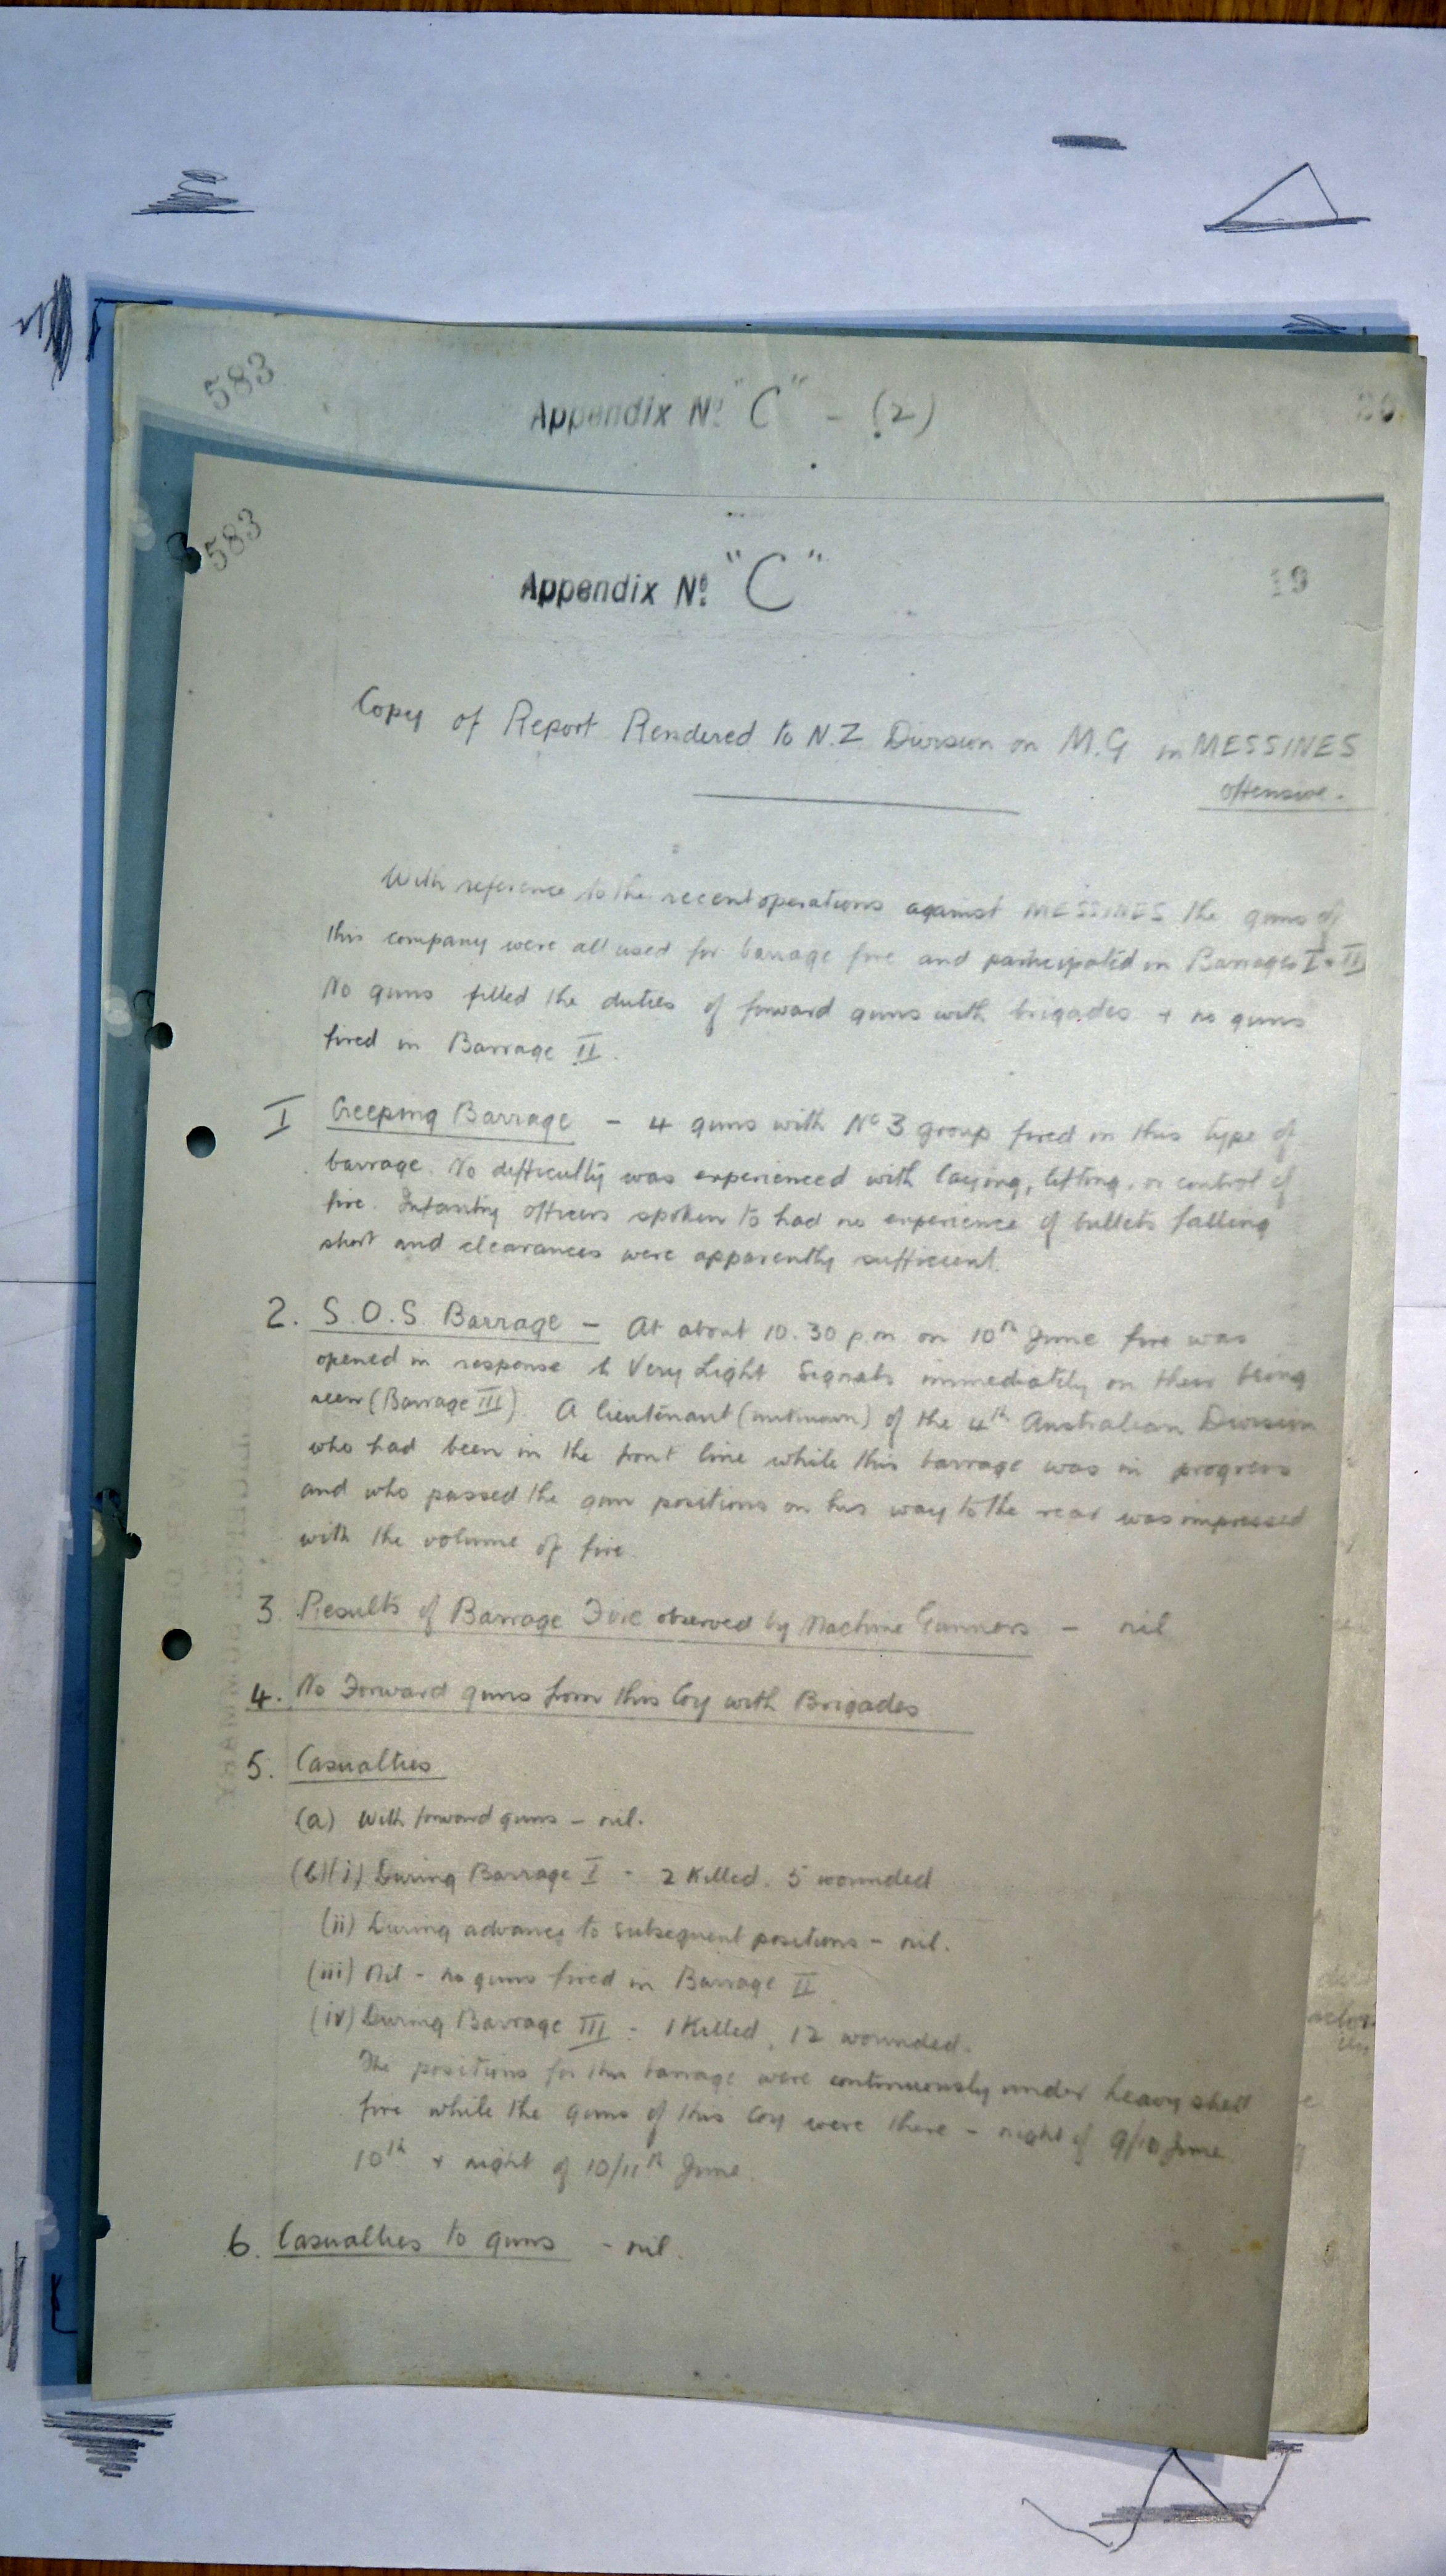 583
Appendix Nº "C" - (2)
583
Appendix Nº "C"
19
Copy of Report Rendered to N.Z Division on M.G in MESSINES
offensive.
With reference to the recent operations against MESSINES the guns of
this company were all used for barrage fire and participated in Barrages I &
No guns filled the duties of forward guns with brigades + no guns
fired in Barrage II.
I Creeping Barrage - 4 guns with No 3 group fired in this type of
barrage. No difficulty was experienced with laying, lifting, or control of
fire. Infantry officers spoken to had no experience of bullets falling
short and clearances were apparently sufficient.
2. S.O.S. Barrage - At about 10.30 p.m on 10th June fire was
opened in response to Very Light Signals immediately on their being
seen (Barrage III). A lieutenant (unknown) of the 4th Australian Division
who had been in the front line while this barrage was in progress
and who passed the gun positions on his way to the rear was impressed
with the volume of fire.
3. Results of Barrage Fire observed by Machine Gunners - nil
4. No Forward guns from this Coy with Brigades
5. Casualties
(a) With forward guns - nil.
(b)(i) During Barrage I - 2 Killed. 5 wounded
(ii) During advance to subsequent positions - nil.
(iii) Nil - no guns fired in Barrage II
(iv) During Barrage III - 1 Killed, 12 wounded.
The positions for this barrage were continuously under heavy shell
fire while the guns of this Coy were there - night of 9/10 June
10th + night of 10/11th June.
6. Casualties to guns - nil.